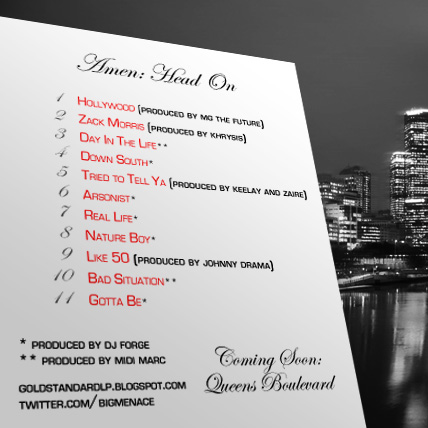 Amen: Head On
1 Hollywood (produced by MG the Future)
2 Zack Morris (produced by Khrysis)
3 Day In The Life**
4 Down South*
5 Tried to Tell Ya (produced by Keelay and Zaire)
6 Arsonist*
7 Real Life*
8 Nature Boy*
9 Like 50 (produced by Johnny Drama)
10 Bad Situation**
11 Gotta Be*
* produced by DJ Forge
** produced by Midi Marc
Coming Soon:
Queens Boulevard
goldstandardlp.blogspot.com
twitter.com/bigmenace